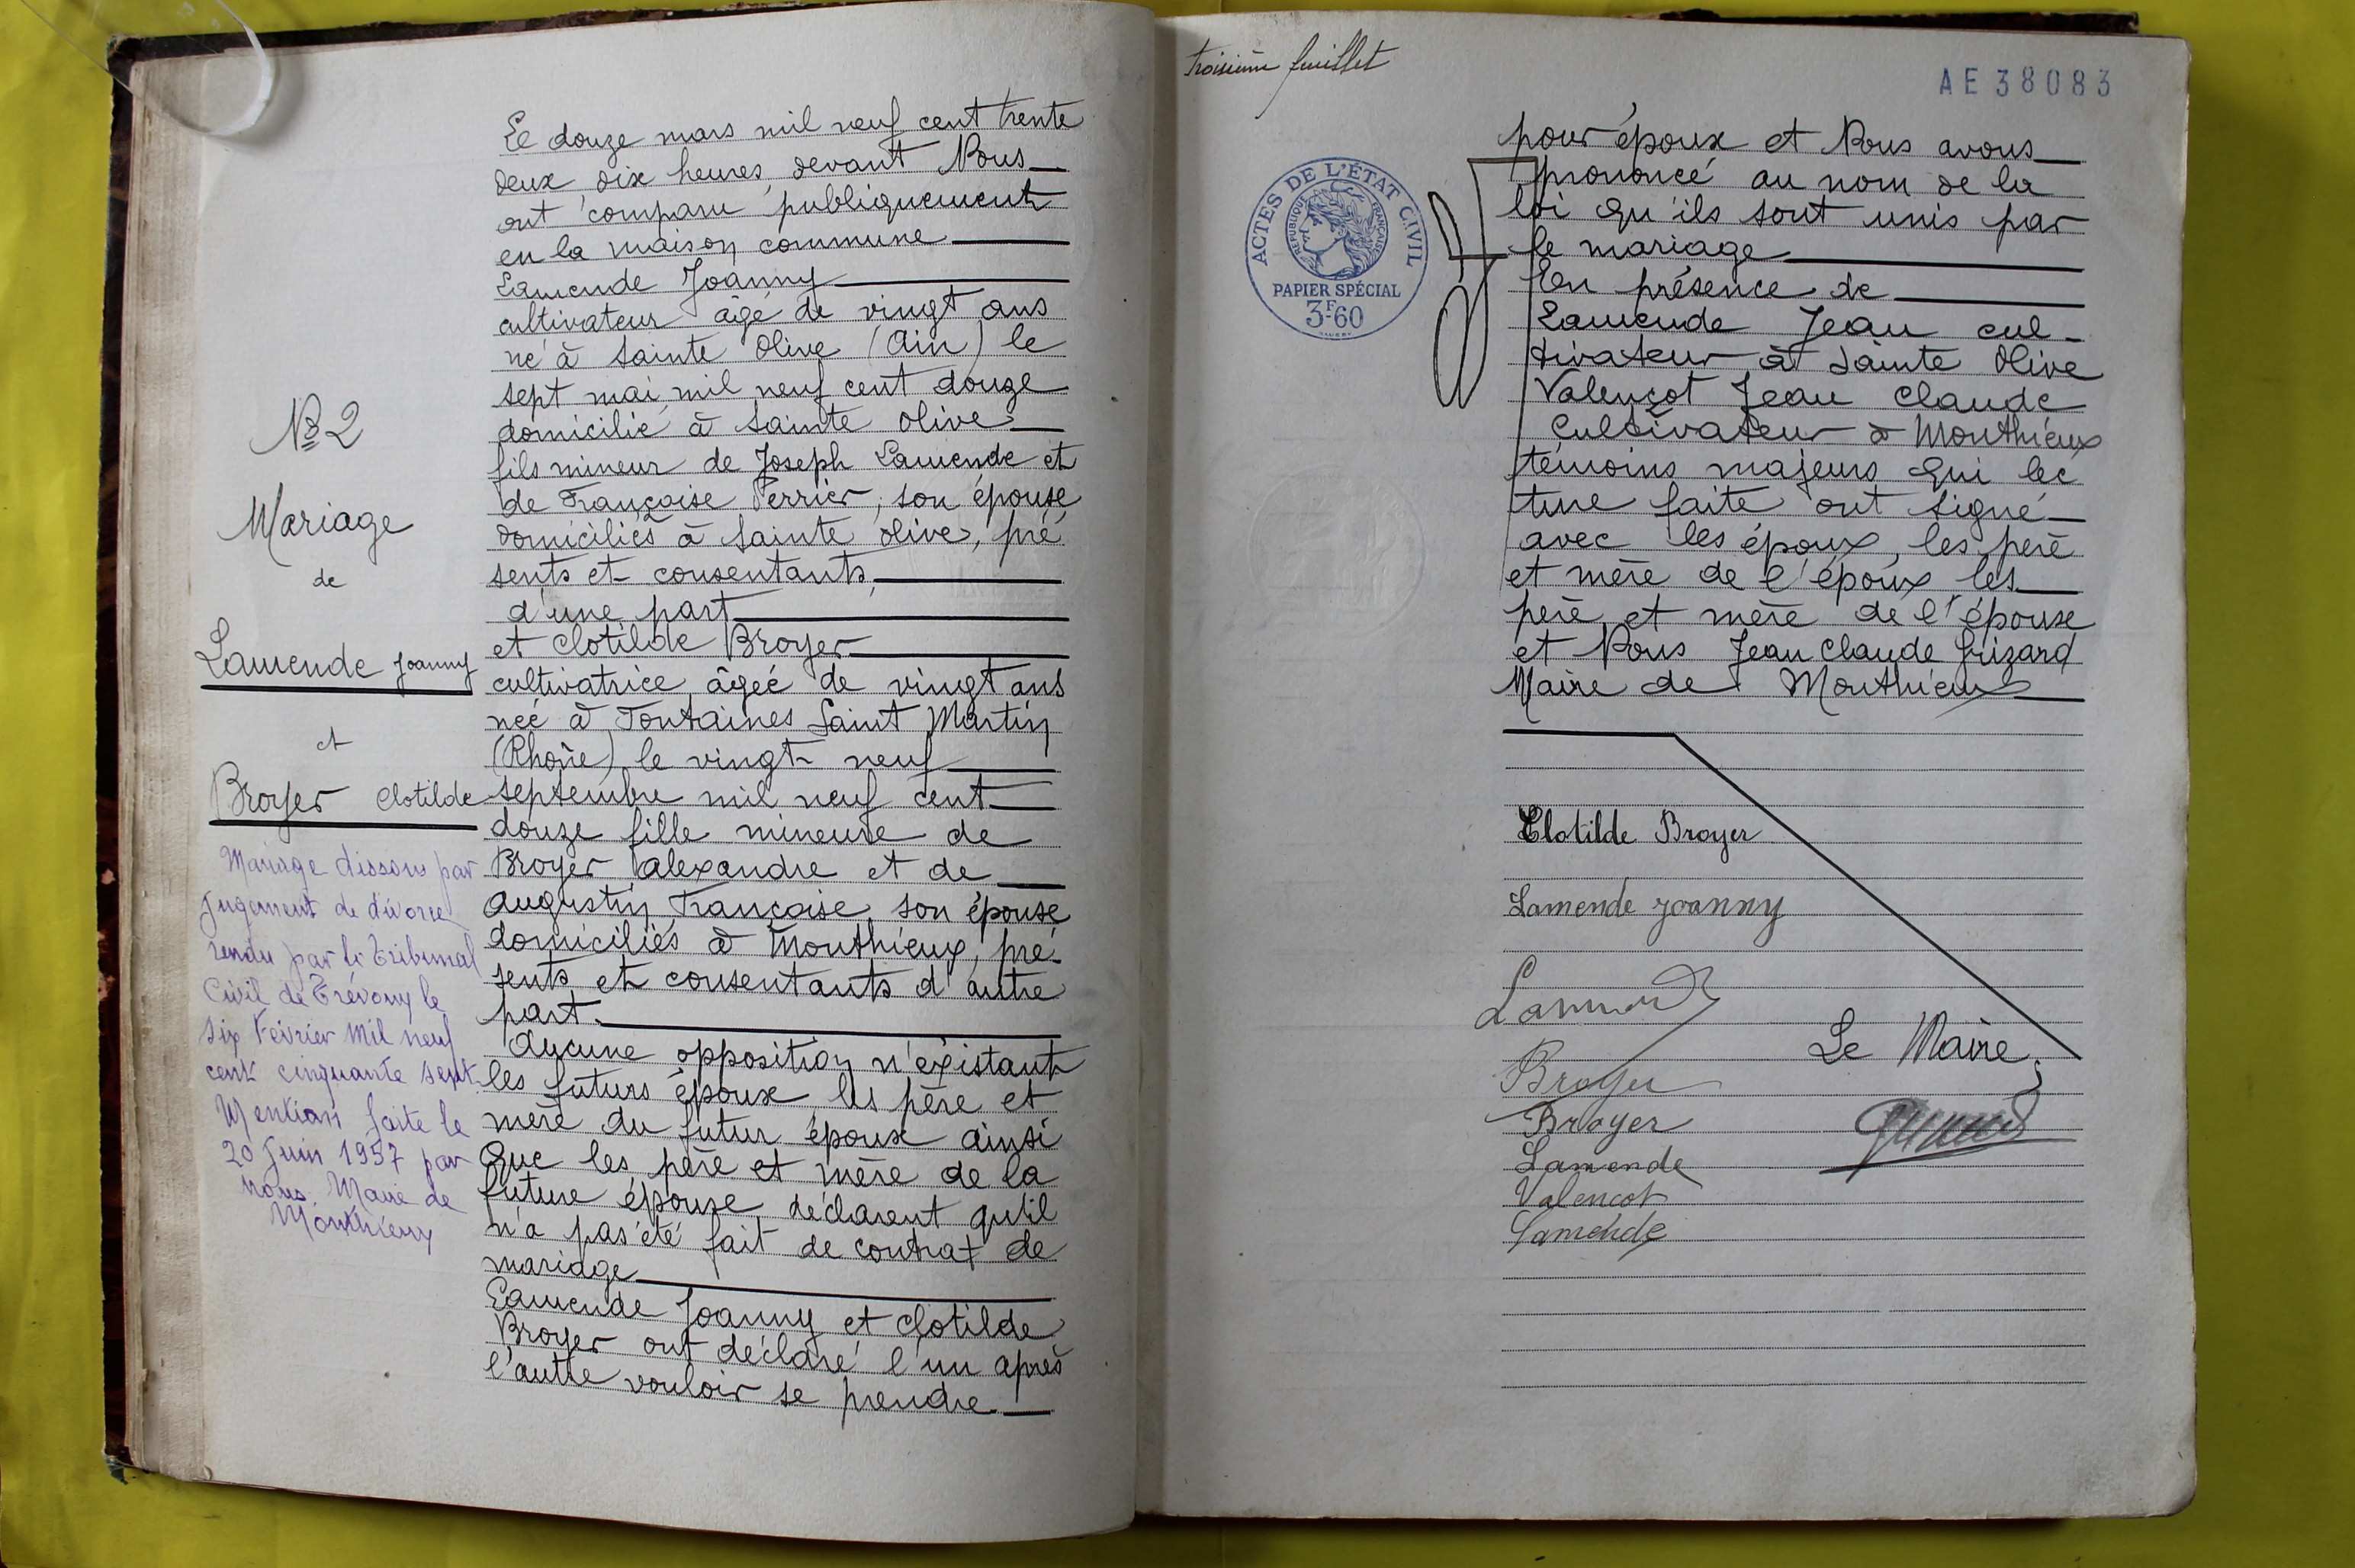 Nº 2
Mariage
de
Lamende Joanny
et
Broyer Clotilde
Mariage dissous par
jugement de divorce
rendu par le Tribunal
Civil de Trévoux le
six Février Mil neuf
cent cinquante sept
Mention faite le
20 Juin 1957 par
nous, Maire de
Monthieux
Le douze mars mil neuf cent trente
deux dix heures, devant Nous
ont comparu publiquement
en la maison commune
Lamende Joanny
cultivateur âgé de vingt ans
né à Sainte Olive (Ain) le
sept mai mil neuf cent douze
domicilié à Sainte Olive
fils mineur de Joseph Lamende et
de Françoise Perrier, son épouse
domiciliés à Sainte Olive, pré
sents et consentants,
d'une part
et Clotilde Broyer
cultivatrice âgée de vingt ans
née à Fontaines Saint Martin
(Rhône) le vingt neuf
septembre mil neuf cent
douze fille mineure de
Broyer Alexandre et de
Augustin Françoise, son épouse
domiciliés à Monthieux, pré-
sents et consentants d'autre
part.
Aucune opposition n'éxistant
les futurs époux les père et
mère du futur époux ainsi
que les père et mère de la
future épouse déclarent qu'il
n'a pas été fait de contrat de
mariage
Lamende Joanny et Clotilde
Broyer ont déclaré l'un après
l'autre vouloir se prendre
troisième feuillet
AE 38083
ACTES DE L'ÉTAT CIVIL
RÉPUBLIQUE FRANÇAISE
PAPIER SPÉCIAL
3F60
pour époux et Nous avons
prononcé au nom de la
loi qu'ils sont unis par
le mariage
En présence de
Lamende Jean cul-
tivateur à Sainte Olive
Valençot Jean Claude
Cultivateur à Monthieux
témoins majeurs qui lec
ture faite ont signé
avec les époux, les père
et mère de l'époux les
père et mère de l'épouse
et Nous Jean Claude Grizard
Maire de Monthieux
Clotilde Broyer
Lamende Joanny
Broyer
Broyer
Lamende
Valencot
Lamende
Le Maire,